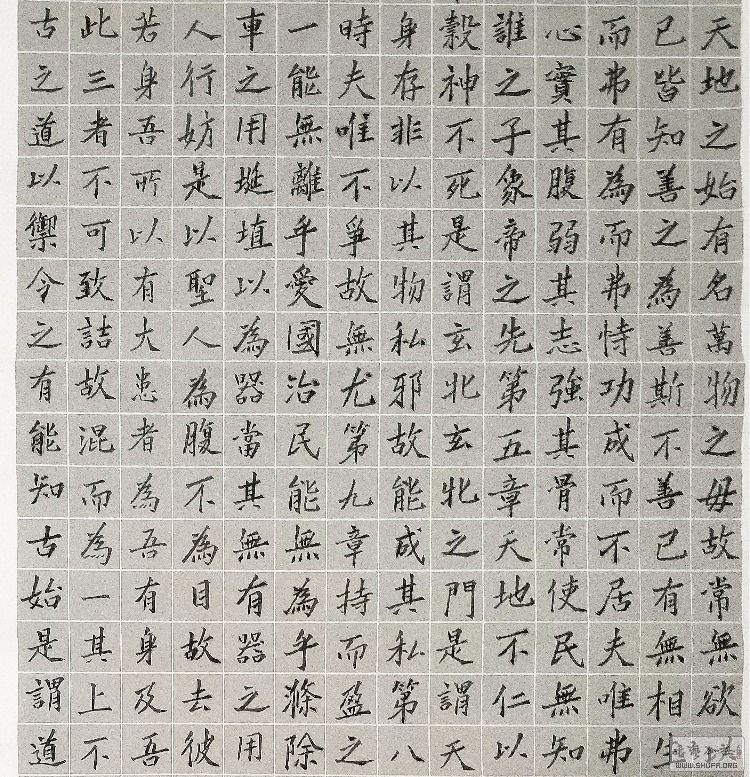 天地之始有名萬物之母故常無欲
已皆知善之為善斯不善已有無相生
而弗有為而弗恃功成而不居夫唯弗
心實其腹弱其志強其骨常使民無知
誰之子象帝之先第五章天地不仁以
穀神不死是謂玄牝玄牝之門是謂天
身存非以其物私邪故能成其私第八
時夫唯不爭故無尤第九章持而盈之
一能無離乎愛國治民能無為乎滌除
車之用埏埴以為器當其無有器之用
人行妨是以聖人為腹不為目故去彼
若身吾所以有大患者為吾有身及吾
此三者不可致詰故混而為一其上不
古之道以禦今之有能知古始是謂道
WWW.SHUFA.ORG